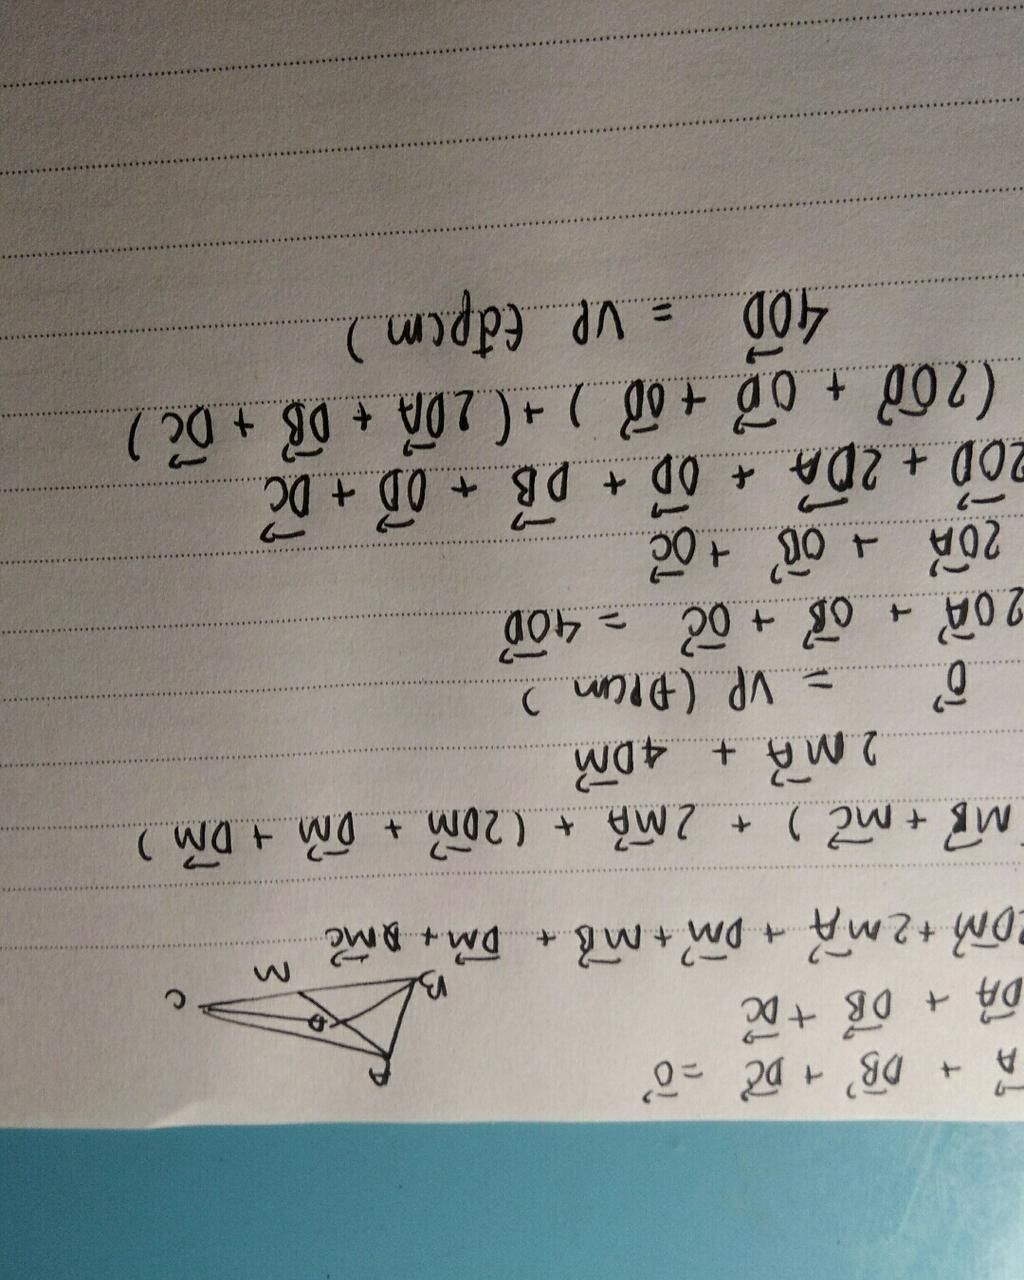 A⃗ + DB⃗ + DC⃗ = 0⃗
DA⃗ + DB⃗ + DC⃗
A
D
C
B
M
2DM⃗ + 2MA⃗ + DM⃗ + MB⃗ + DM⃗ + MC⃗
MB⃗ + MC⃗ ) + 2MA⃗ + (2DM⃗ + DM⃗ + DM⃗ )
2MA⃗ + 4DM⃗
0⃗ = VP (Đpcm)
2OA⃗ + OB⃗ + OC⃗ = 4OD⃗
2OA⃗ + OB⃗ + OC⃗
2OD⃗ + 2DA⃗ + OD⃗ + DB⃗ + OD⃗ + DC⃗
(2OD⃗ + OD⃗ + OD⃗ ) + (2DA⃗ + DB⃗ + DC⃗ )
4OD⃗ = VP (đpcm)